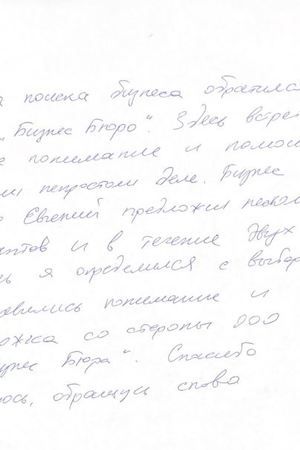 а поиска бизнеса обратился
„Бизнес Бюро“. Здесь встре
е понимание и помощ
ми непростом деле. Бизнес
о Евгений предложил нескол
ентов и в течение двух
ь я определился с выбор
понимание и
со стороны ООО
знес Бюро“. Спасибо
юсь, обращусь снова